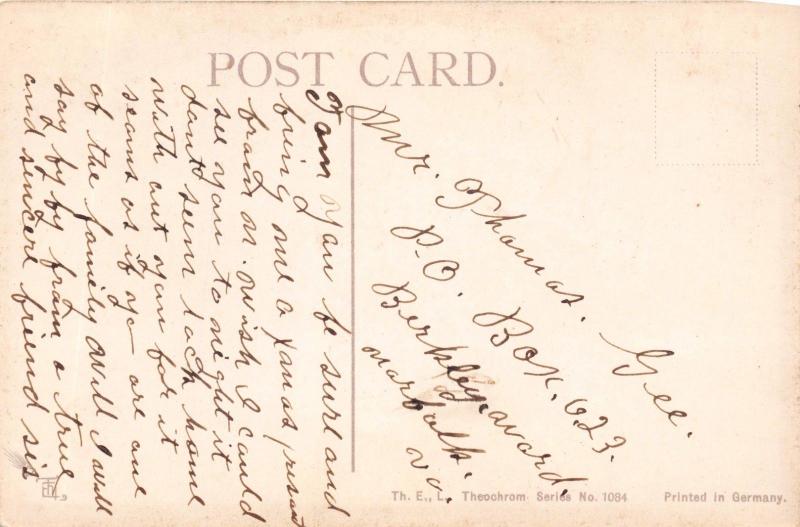 POST CARD.
Tom you be sure and
bring me a xmas presant
from N. wish I could
see you to night it
dont seem lack home
with out you for it
seams as if you are one
of the family will I will
say by by from a true
and sincere friend sis
Mr. Thomas. Gee.
P.O. Box. 623.
Berkley. ward.
norfolk.
va.
Th. E., L. Theochrom Series No. 1084
Printed in Germany.